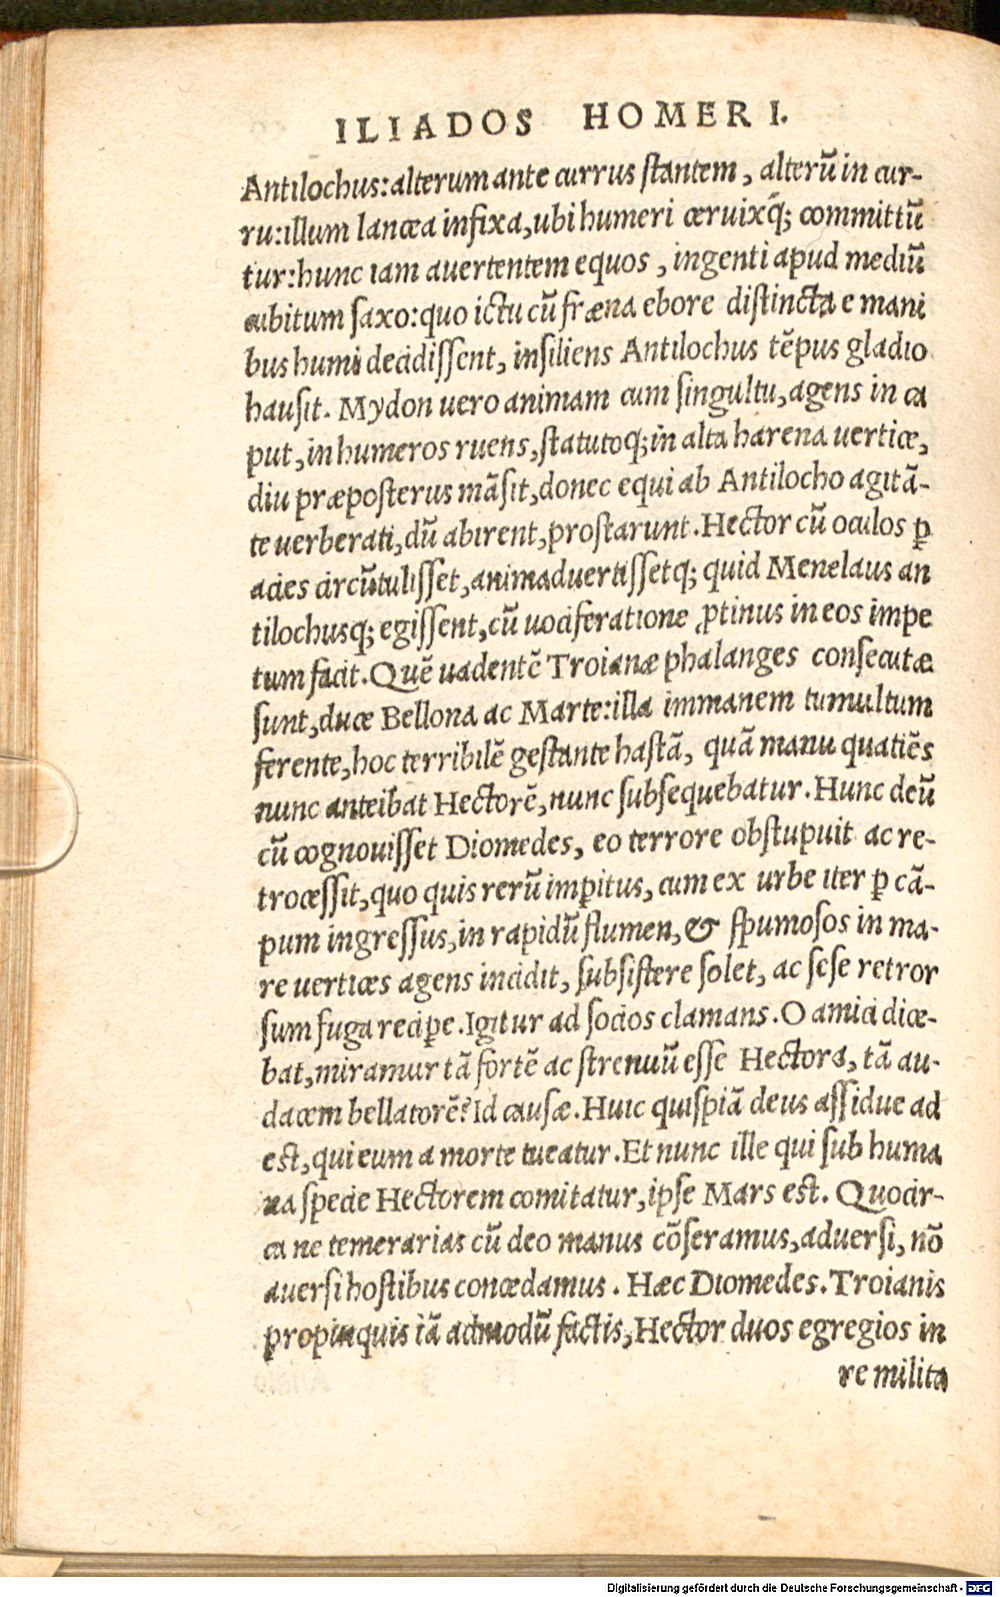 ILIADOS HOMERI.
Antilochus: alterum ante currus stantem, alterū in cur-
ru: illum lancea infixa, ubi humeri ceruixq; committū
tur: hunc iam auertentem equos, ingenti apud mediū
cubitum saxo: quo ictu cū fræna ebore distincta e mani
bus humi decidissent, insiliens Antilochus tēpus gladio
hausit. Mydon uero animam cum singultu, agens in ca
put, in humeros ruens, statutoq; in alta harena uertice,
diu præposterus māsit, donec equi ab Antilocho agitā-
te uerberati, dū abirent, prostarunt. Hector cū oculos ꝑ
acies circūtulisset, animaduertissetq; quid Menelaus an
tilochusq; egissent, cū uociferatione ꝓtinus in eos impe
tum facit. Quē uadentē Troianæ phalanges consecutæ
sunt, duce Bellona ac Marte: illa immanem tumultum
ferente, hoc terribilē gestante hastā, quā manu quatiēs
nunc anteibat Hectorē, nunc subsequebatur. Hunc deū
cū cognouisset Diomedes, eo terrore obstupuit ac re-
trocessit, quo quis rerū imꝑitus, cum ex urbe iter ꝑ cā-
pum ingressus, in rapidū flumen, & spumosos in ma-
re uertices agens incidit, subsistere solet, ac sese retror
sum fuga reciꝑe. Igitur ad socios clamans. O amici dice-
bat, miramur tā fortē ac strenuū esse Hectora, tā au-
dacem bellatorē? Id causæ. Huic quispiā deus assidue ad
est, qui eum a morte tueatur. Et nunc ille qui sub huma
na specie Hectorem comitatur, ipse Mars est. Quocir-
ca ne temerarias cū deo manus cōseramus, aduersi, nō
auersi hostibus concedamus. Hæc Diomedes. Troianis
propinquis iā admodū factis, Hector duos egregios in
re milita
Digitalisierung gefördert durch die Deutsche Forschungsgemeinschaft - DFG